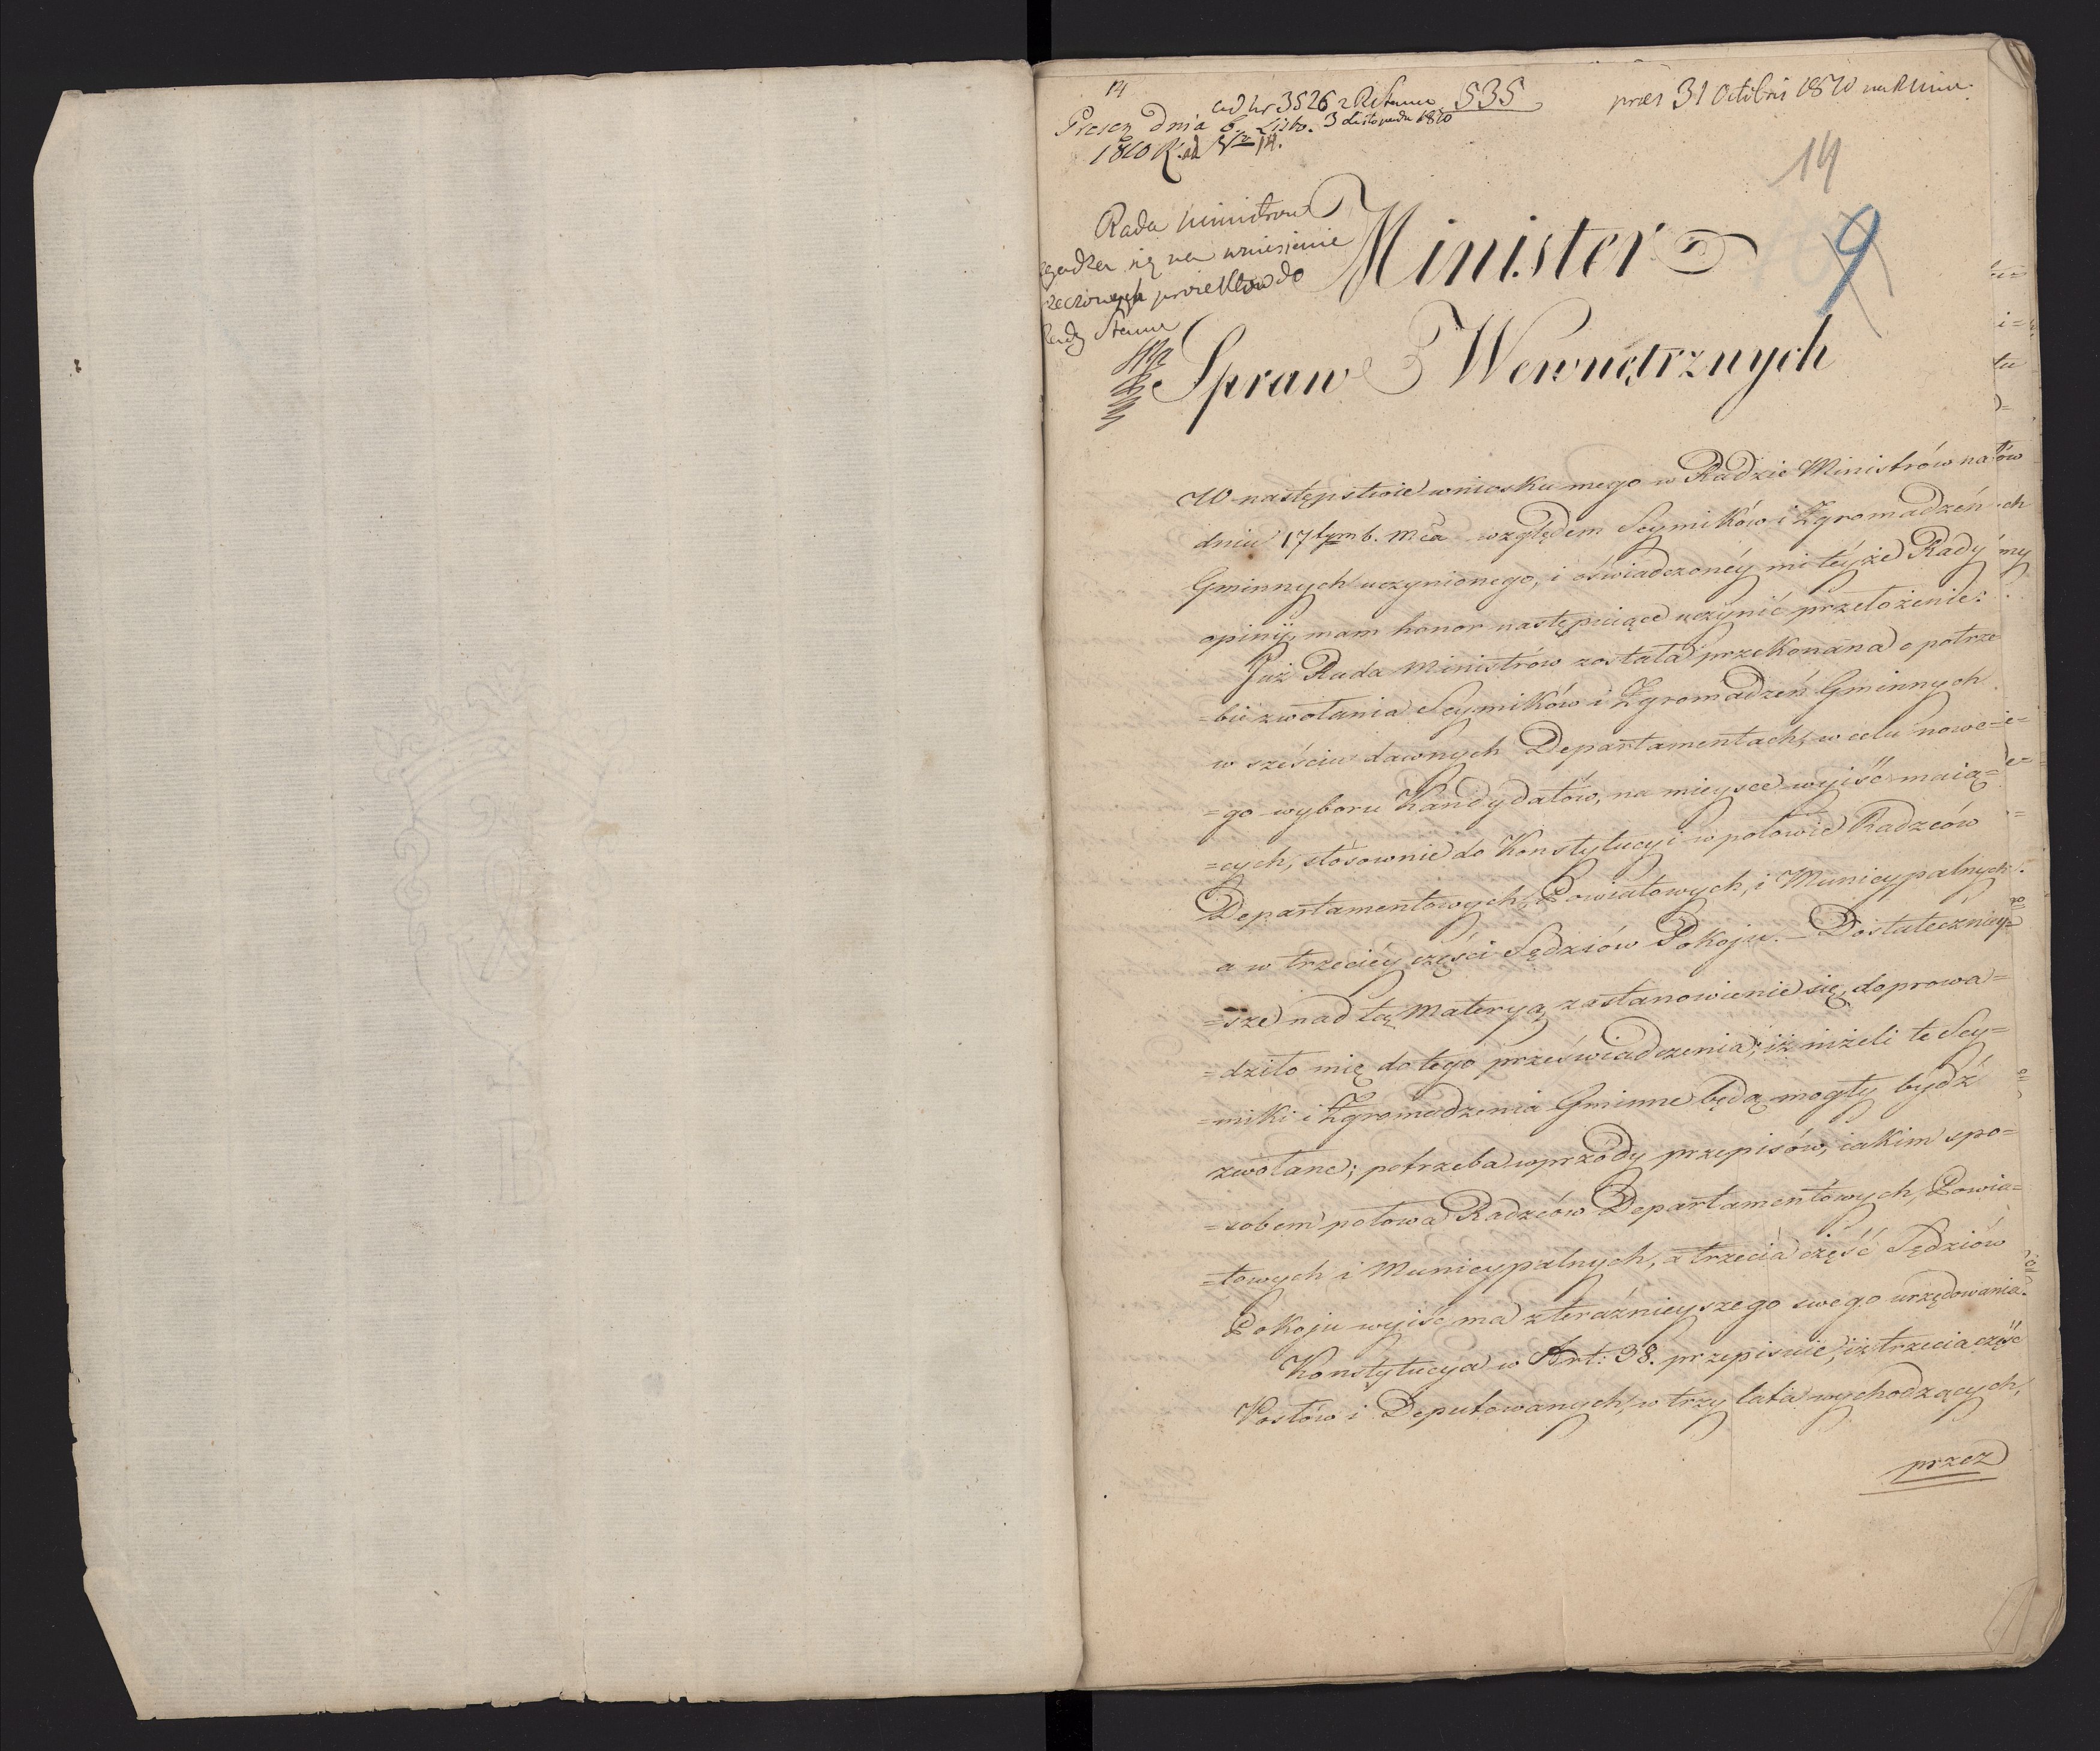 14
ad Nr 3526 z R. Stanu 535
praes 31 Octobris 1810
Presen dnia 6. Listo. 3 Listopada 1810
1810 R. ad Nr 14.
14
9
Rada Ministrów
zgadza się na wniesienie
rzeczonych proiektów do
Rady Stanu
Minister
Spraw Wewnętrznych
W następstwie wniosku mego w Radzie Ministrów na
dniu 17tym b. mca względem Seymików i Zgromadzeń
Gminnych uczynionego, i oświadczonéy mi téyże Rady
opinij, mam honor następuiące uczynić przełożenie:
Już Rada Ministrów została przekonana o potrze
=bie zwołania Seymików i Zgromadzeń Gminnych
w sześciu dawnych Departamentach, w celu nowe=
=go wyboru Kandydatów, na mieysce wyiść maią=
=cych, stósownie do Konstytucyi w połowie Radzców
Departamentowych, Powiatowych, i Municypalnych
a w trzeciéy części Sędziów Pokoju. — Dostateczniey=
=sze nad tą Materyą zastanowienie się, doprowa=
=dziło mię do tego przeświadczenia; iż niżeli te Sey=
=miki i Zgromadzenia Gminne będą mogły bydź
zwołane; potrzeba wprzódy przepisów, iakim spo=
=sobem połowa Radzców Departamentowych, Powia=
=towych i Municypalnych, a trzecia część Sędziów
Pokoju wyiść ma z teraźnieyszego swego urzędowania.
Konstytucya w Art: 38. przepisuie, iż trzecia część
Posłów i Deputowanych, w trzy lata wychodzących,
przez